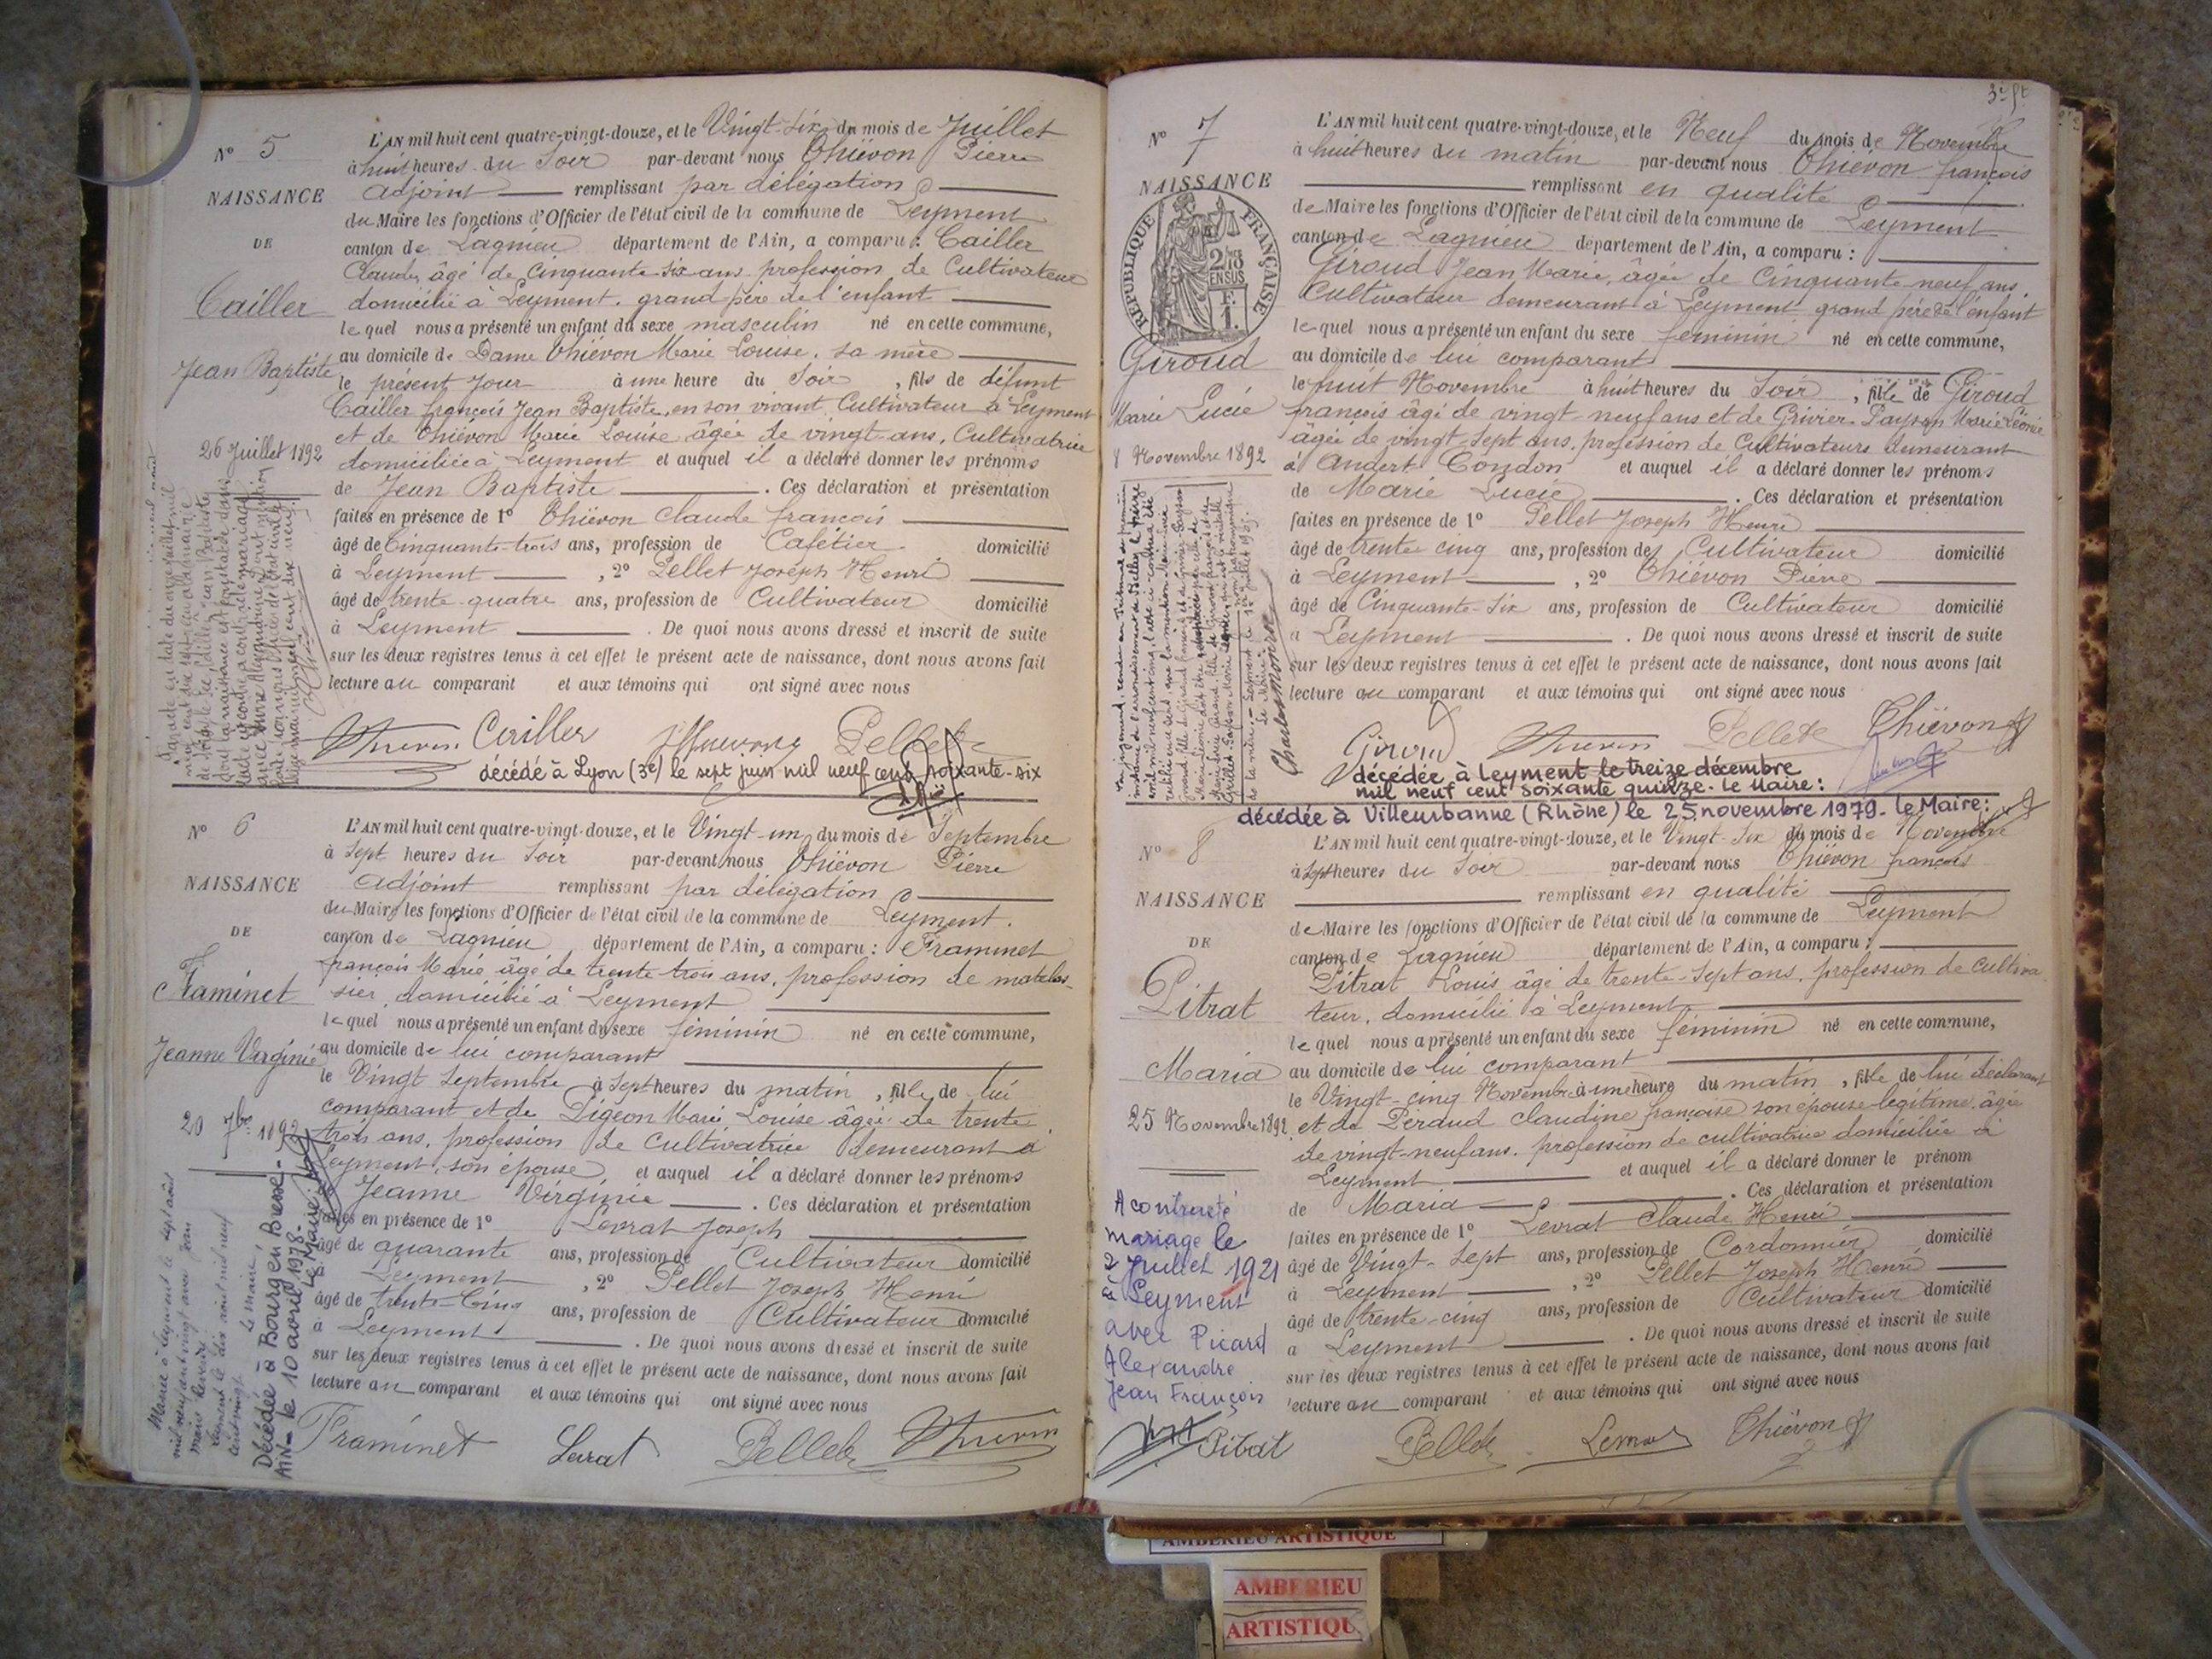 N° 5
NAISSANCE
DE
Cailler
Jean Baptiste
26 Juillet 1892
L'AN mil huit cent quatre-vingt-douze, et le Vingt-Six du mois de Juillet
à huit heures du Soir par-devant nous Thiévon Pierre
adjoint remplissant par délégation
du Maire les fonctions d'Officier de l'état civil de la commune de Leyment
canton de Lagnieu département de l'Ain, a comparu : Cailler
Claude, âgé de Cinquante Six ans profession de Cultivateur
domicilié à Leyment. grand père de l'enfant
lequel nous a présenté un enfant du sexe masculin né en cette commune,
au domicile de Dame Thiévon Marie Louise, sa mère
le présent Jour à une heure du Soir, fils de défunt
Cailler françois Jean Baptiste, en son vivant Cultivateur à Leyment
et de Thiévon Marie Louise âgée de vingt ans, Cultivatrice
domiciliée à Leyment et auquel il a déclaré donner les prénoms
de Jean Baptiste. Ces déclaration et présentation
faites en présence de 1° Thiévon Claude françois
âgé de Cinquante-trois ans, profession de Cafetier domicilié
à Leyment, 2° Pellet Joseph Henri
âgé de trente-quatre ans, profession de Cultivateur domicilié
à Leyment. De quoi nous avons dressé et inscrit de suite
sur les deux registres tenus à cet effet le présent acte de naissance, dont nous avons fait
lecture au comparant et aux témoins qui ont signé avec nous
Cailler Pellet
décédé à Lyon (3e) le sept juin mil neuf cent soixante-six
N° 6
NAISSANCE
DE
Framinet
Jeanne Virginie
20 7bre 1892
Décédée à Bourg en Bresse
AIN - le 10 avril 1978 - Le Maire
L'AN mil huit cent quatre-vingt-douze, et le Vingt-un du mois de Septembre
à Sept heures du Soir par-devant nous Thiévon Pierre
adjoint remplissant par délégation
du Maire les fonctions d'Officier de l'état civil de la commune de Leyment.
canton de Lagnieu département de l'Ain, a comparu : Framinet
françois Marie âgé de trente trois ans, profession de matelas-
sier, domicilié à Leyment
lequel nous a présenté un enfant du sexe féminin né en cette commune,
au domicile de lui comparant
le Vingt Septembre à Sept heures du matin, fille de lui
comparant et de Pigeon Marie Louise âgée de trente
trois ans, profession de Cultivatrice demeurant à
Leyment, son épouse et auquel il a déclaré donner les prénoms
Jeanne Virginie. Ces déclaration et présentation
faites en présence de 1° Levrat Joseph
âgé de quarante ans, profession de Cultivateur domicilié
Leyment, 2° Pellet Joseph Henri
âgé de trente-Cinq ans, profession de Cultivateur domicilié
à Leyment. De quoi nous avons dressé et inscrit de suite
sur les deux registres tenus à cet effet le présent acte de naissance, dont nous avons fait
lecture au comparant et aux témoins qui ont signé avec nous
Framinet Levrat Pellet
N° 7
NAISSANCE
RÉPUBLIQUE FRANÇAISE
Giroud
Marie Lucie
8 Novembre 1892
Charlemonroz
L'AN mil huit cent quatre-vingt-douze, et le Neuf du mois de Novembre
à huit heures du matin par-devant nous Thiévon françois
remplissant en qualité
de Maire les fonctions d'Officier de l'état civil de la commune de Leyment
canton de Lagnieu département de l'Ain, a comparu :
Giroud Jean Marie, âgée de Cinquante neuf ans,
Cultivateur demeurant à Leyment grand père de l'enfant
lequel nous a présenté un enfant du sexe féminin né en cette commune,
au domicile de lui comparant
le huit Novembre à huit heures du Soir, fille de Giroud
françois âgé de vingt-neuf ans et de Grivier Paysan Marie Léonie
âgée de vingt-sept ans. profession de Cultivateurs demeurant
à Andert Condon et auquel il a déclaré donner les prénoms
de Marie Lucie. Ces déclaration et présentation
faites en présence de 1° Pellet Joseph Henri
âgé de trente cinq ans, profession de Cultivateur domicilié
à Leyment, 2° Thiévon Pierre
âgé de Cinquante-Six ans, profession de Cultivateur domicilié
à Leyment. De quoi nous avons dressé et inscrit de suite
sur les deux registres tenus à cet effet le présent acte de naissance, dont nous avons fait
lecture au comparant et aux témoins qui ont signé avec nous
Giroud Pellet Thiévon
décédée à Leyment le treize décembre
mil neuf cent soixante quinze. le Maire :
décédée à Villeurbanne (Rhône) le 25 novembre 1979. Le Maire :
N° 8
NAISSANCE
DE
Pitrat
Maria
25 Novembre 1892
A contracté
mariage le
2 Juillet 1921
à Leyment
avec Picard
Alexandre
Jean François
L'AN mil huit cent quatre-vingt-douze, et le Vingt-Six du mois de Novembre
à Sept heures du Soir par-devant nous Thiévon françois
remplissant en qualité
de Maire les fonctions d'Officier de l'état civil de la commune de Leyment
canton de Lagnieu département de l'Ain, a comparu :
Pitrat Louis âgé de trente-Sept ans, profession de Cultiva
teur, domicilié à Leyment
lequel nous a présenté un enfant du sexe féminin né en cette commune,
au domicile de lui comparant
le Vingt-cinq Novembre à une heure du matin, fille de lui déclarant
et de Péraud Claudine françoise son épouse légitime, âgée
de vingt-neuf ans. profession de cultivatrice domiciliée à
Leyment et auquel il a déclaré donner le prénom
de Maria. Ces déclaration et présentation
faites en présence de 1° Levrat Claude Henri
âgé de Vingt-Sept ans, profession de Cordonnier domicilié
à Leyment, 2° Pellet Joseph Henri
âgé de trente-cinq ans, profession de Cultivateur domicilié
à Leyment. De quoi nous avons dressé et inscrit de suite
sur les deux registres tenus à cet effet le présent acte de naissance, dont nous avons fait
lecture au comparant et aux témoins qui ont signé avec nous
Pitrat Pellet Thiévon
AMBERIEU ARTISTIQUE
AMBERIEU
ARTISTIQU